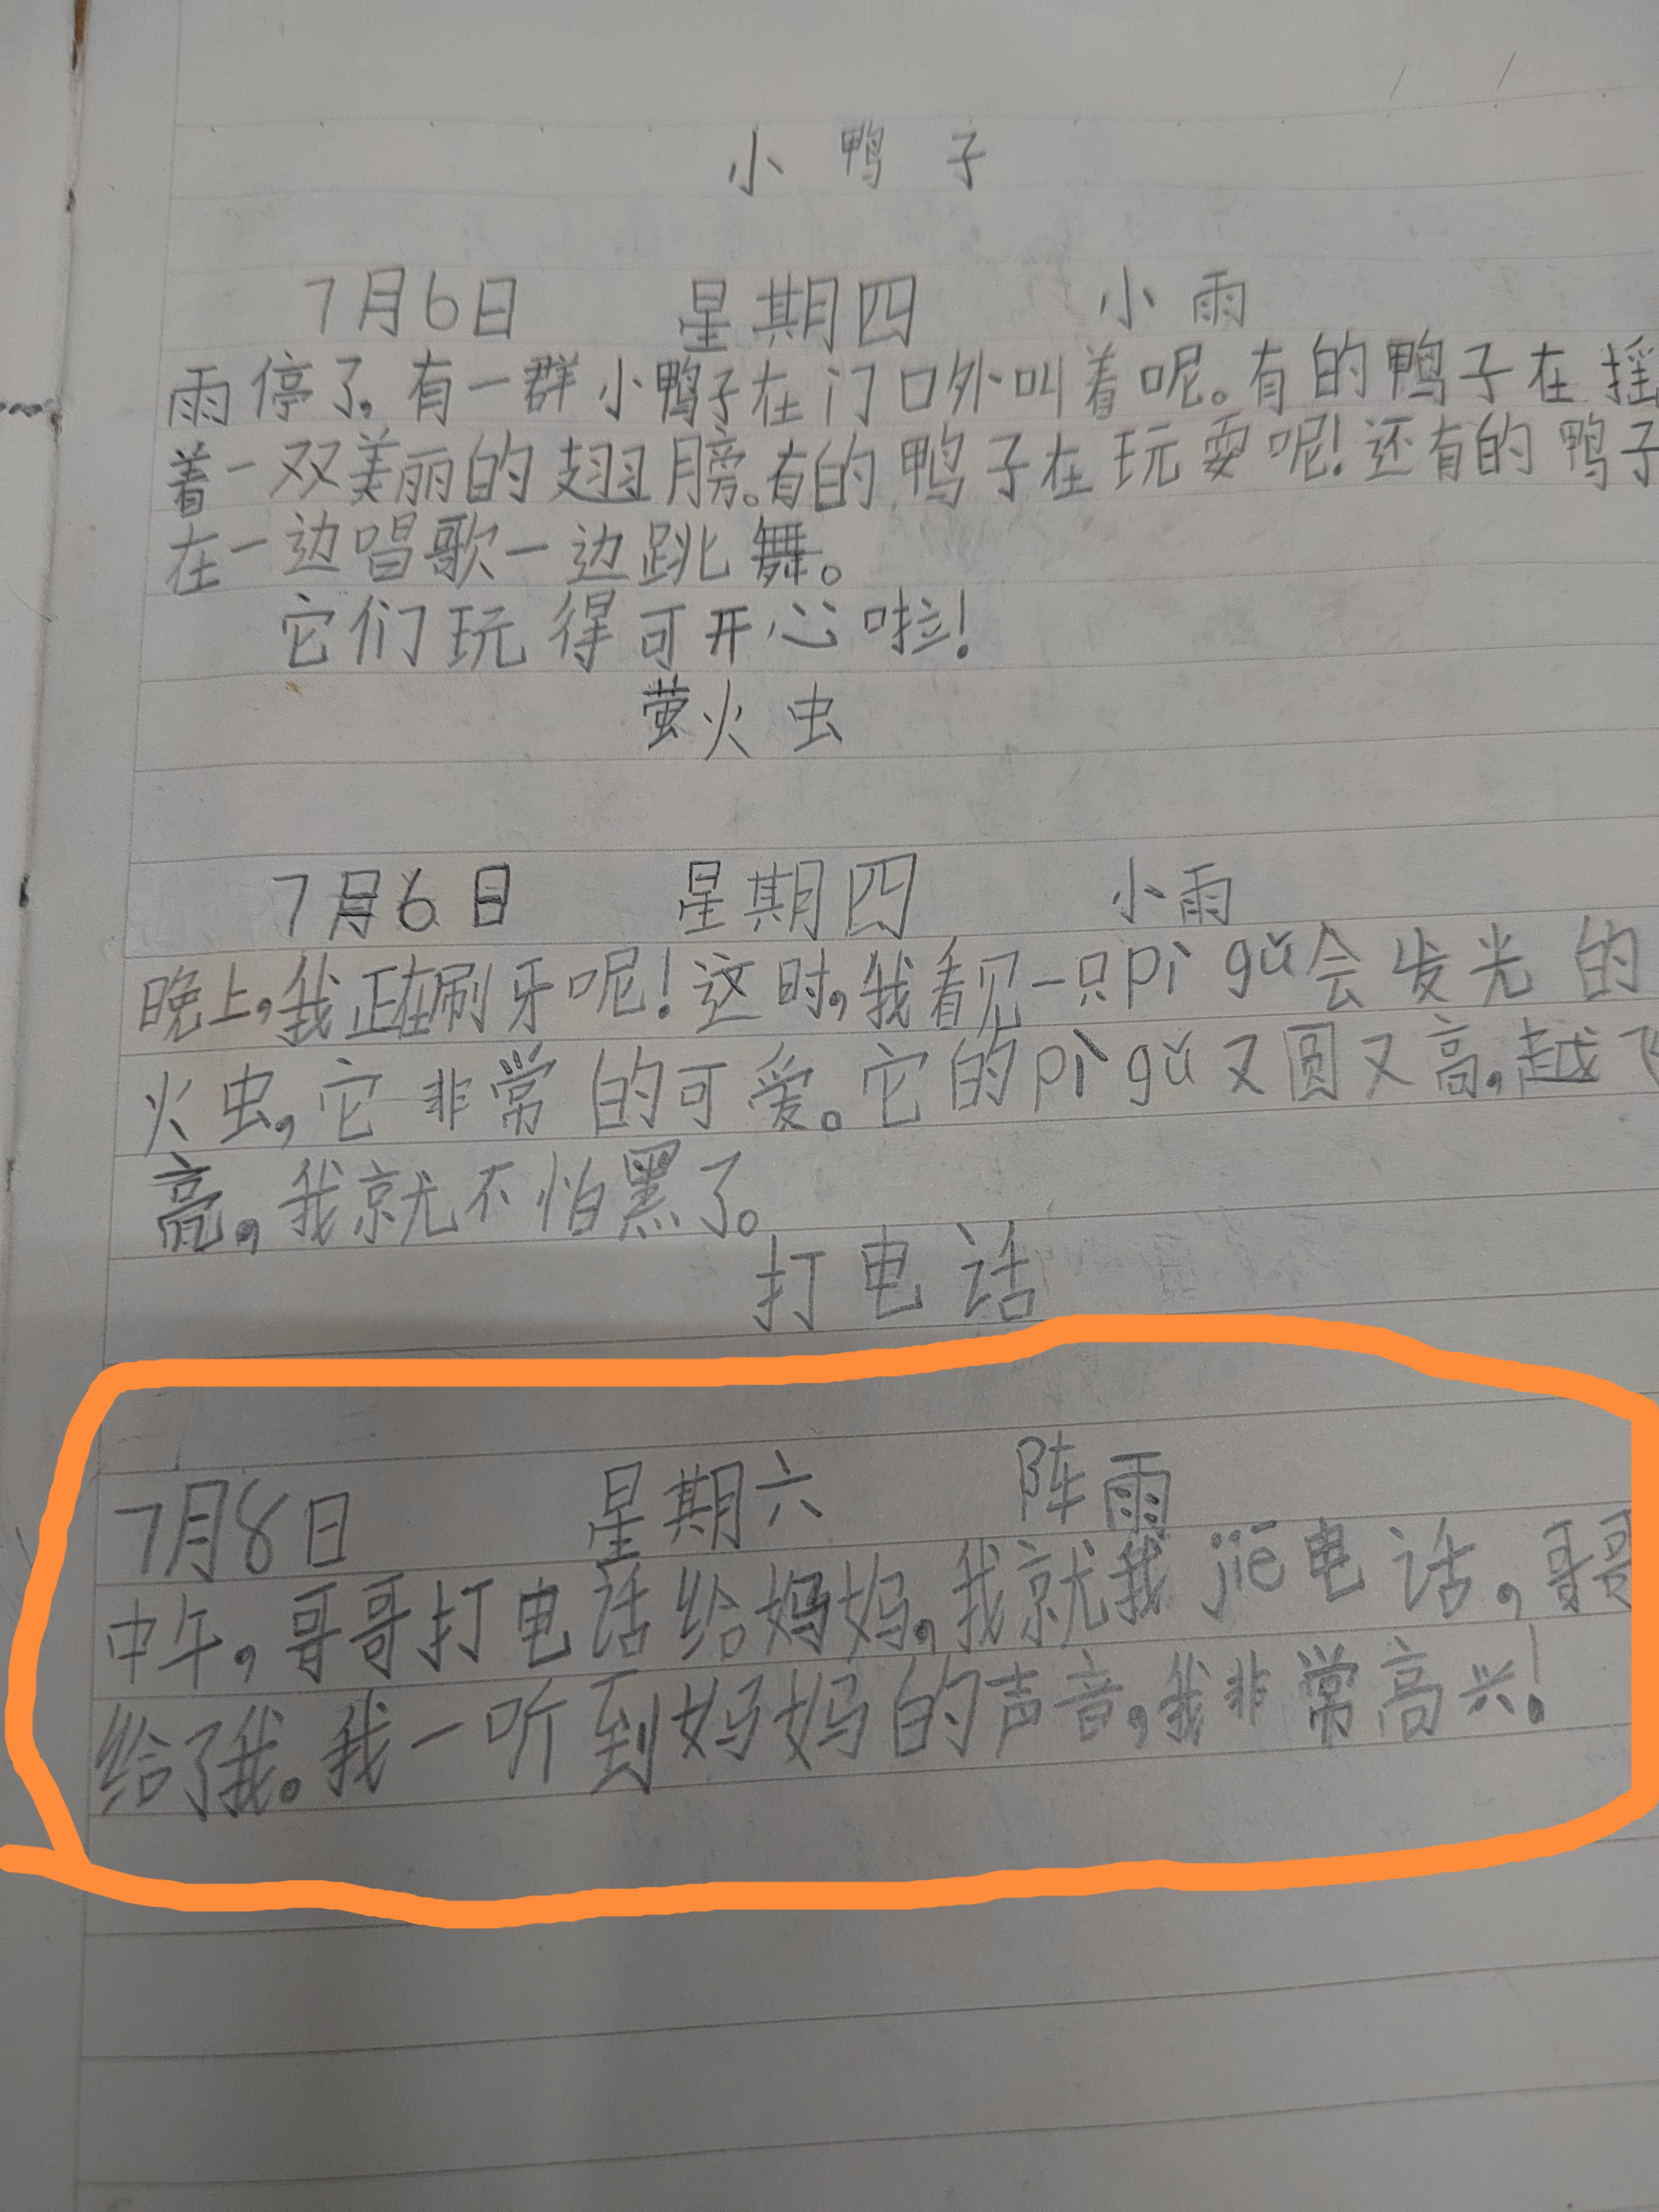 小鸭子
7月6日 星期四 小雨
雨停了,有一群小鸭子在门口外叫着呢。有的鸭子在摇
着一双美丽的翅膀。有的鸭子在玩耍呢!还有的鸭子
在一边唱歌一边跳舞。
它们玩得可开心啦!
萤火虫
7月6日 星期四 小雨
晚上,我正在刷牙呢!这时,我看见一只pì gǔ会发光的
火虫,它非常的可爱。它的pì gǔ又圆又高,越飞
高,我就不怕黑了。
打电话
7月8日 星期六 阵雨
中午,哥哥打电话给妈妈,我就我jiē电话,哥哥
给了我。我一听到妈妈的声音,我非常高兴!